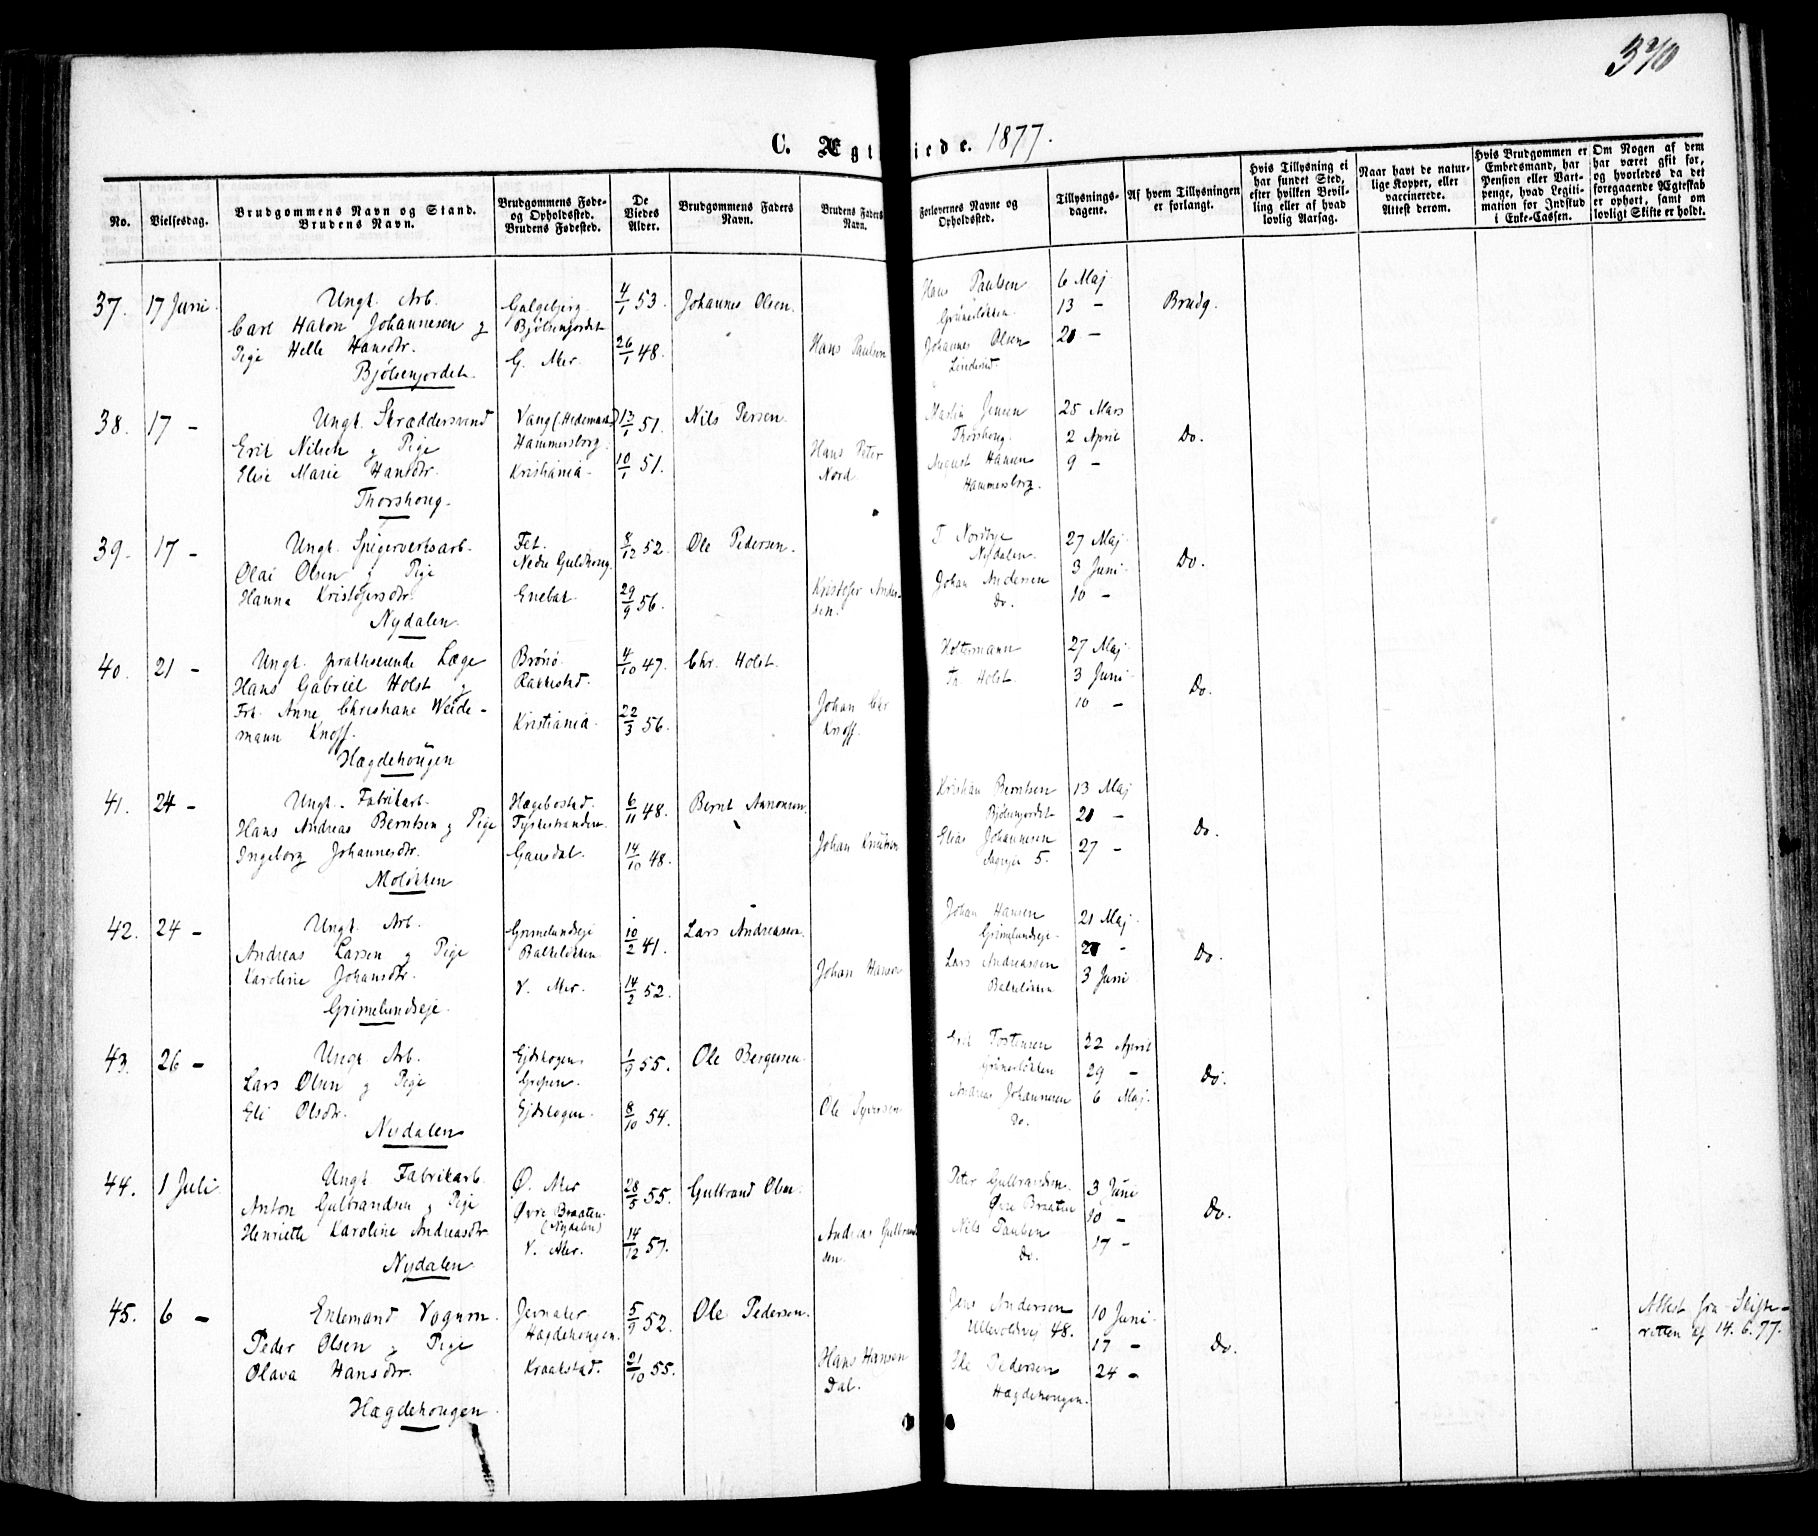 370
C. Ægteviede. 1877.
No.
Vielsesdag.
Brudgommens Navn og Stand.
Brudens Navn.
Brudgommens Føde- og Opholdssted.
Brudens Fødested.
De Viedes Alder.
Brudgommens Faders Navn.
Brudens Faders Navn.
Forlovernes Navne og Opholdssted.
Tillysnings-dagene.
Af hvem Tillysningen er forlangt.
Hvis Tillysning ei har fundet Sted, efter hvilken Bevilling eller af hvad lovlig Aarsag.
Naar havt de naturlige Kopper, eller vaccinerede. Attest derom.
Hvis Brudgommen er Embedsmand, har Pension eller Vartpenge, hvad Legitimation for Indskud i Enke-Cassen.
Om Nogen af dem har været gift før, og hvorledes da det foregaaende Ægteskab er ophørt, samt om lovligt Skifte er holdt.
37. 17 Juni
Ungk. Arb.
Carl Hakon Johannesen og
Pige Helle Hansdtr.
Bjølsenjordet.
Galgebjerg
Bjølsenjordet
G. Aker.
4/1 53.
26/1 48.
Johannes Olsen.
Hans Paulsen
Hans Paulsen
Grünerløkken.
Johannes Olsen
Linderud.
6 Maj
13 -
20 -
Brudg.
38. 17 -
Ungk. Skræddersvend
Erik Nilsen og Pige
Elise Marie Hansdtr.
Thorshoug.
Vang (Hedemark)
Hammersborg.
Kristiania.
13/1 51.
10/1 51.
Nils Persen.
Hans Peter
Nord
Martin Jensen
Thorshoug.
August Hansen
Hammersborg.
25 Mars
2 April
9 -
Do.
39. 17 -
Ungk. Spigerverksarb.
Olai Olsen og Pige
Hanna Kristofersdtr.
Nydalen.
Fet.
Nedre Guldhoug.
Enebak.
8/12 52.
29/9 56.
Ole Pedersen.
Kristofer Ander-
sen.
T Nordbye
Nydalen.
Johan Andersen
Do.
27 Maj
3 Juni
10 -
Do.
40. 21 -
Ungk. praktiserende Læge
Hans Gabriel Holst og
Frk. Anne Christiane Weide-
mann Knoff.
Hægdehougen
Brønø
Rakkestad.
Kristiania.
4/10 47.
22/3 56.
Chr. Holst.
Johan Chr
Knoff.
Holtermann
Holst
27 Maj
3 Juni
10 -
Do.
41. 24 -
Ungk. Fabrikarb.
Hans Andreas Berntsen og Pige
Ingeborg Johannesdtr.
Moløkken
Hægebostad.
Tyskestranden.
Gausdal.
6/11 48.
14/10 48.
Bernt Aanonsen.
Johan Knutsen
Kristian Berntsen
Bjølsenjordet
Elias Johannesen
Sagvej 5.
13 Maj
20 -
27 -
Do.
42. 24 -
Ungk. Arb.
Andreas Larsen og Pige
Karoline Johansdtr.
Grimelundseje.
Grimelundseje
Bakkeløkken
V. Aker.
10/2 41.
14/2 52.
Lars Andreassen.
Johan Hansen
Johan Hansen
Grimelundseje.
Lars Andreassen
Bakkeløkken
21 Maj
27 -
3 Juni
Do.
43. 26 -
Ungk. Arb.
Lars Olsen og Pige
Eli Olsdtr.
Nydalen
Ejdskogen
Grefsen.
Ejdskogen.
1/9 55.
8/10 54.
Ole Bergersen.
Ole Syversen
Erik Torstensen
Grünerløkken
Andreas Johannesen
Do.
22 April
29 -
6 Maj.
Do.
44. 1 Juli
Ungk. Fabrikarb.
Anton Gulbrandsen og Pige
Henriette Karoline Andreasdtr.
Nydalen
Ø. Aker
Øvre Braaten
(Nydalen)
V. Aker.
28/5 55.
14/12 57.
Gulbrand Olsen.
Andreas Gulbrand-
sen.
Peter Gulbrandsen.
Øvre Braaten
Nils Paulsen
Do.
3 Juni
10 -
17 -
Do.
45. 6 -
Enkemand Vognm.
Peder Olsen og Pige
Olava Hansdtr.
Hægdehougen.
Jevnaker
Hægdehougen.
Kraakstad.
5/9 52.
21/10 55.
Ole Pedersen.
Hans Hansen
Dal.
Jens Andersen
Ullevoldsvej 48.
Ole Pedersen
Hægdehougen.
10 Juni
17 -
24 -
Do.
Attest fra Skifte-
retten af 14.6.77.